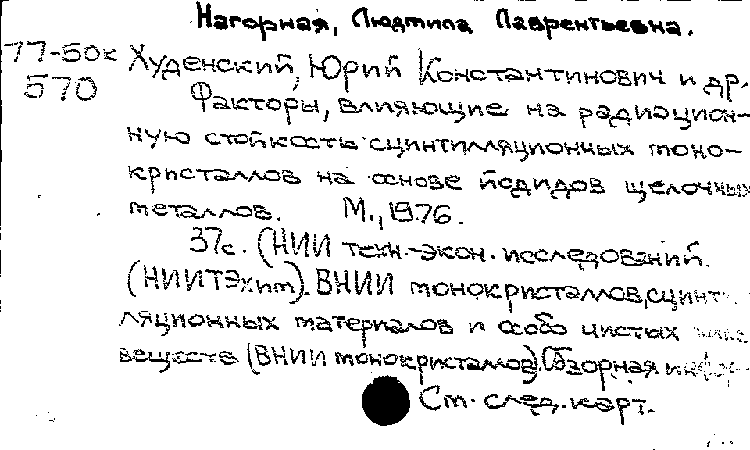 Нагорная, Людмила Лаврентьевна.
77-50к Худенский, Юрий Константинович и др.
570 Факторы, влияющие на радиацион-
ную стойкость сцинтилляционных моно-
кристаллов на основе йодидов щелочных
металлов. М., 1976.
37с. (НИИ техн.-экон. исследований
(НИИТЭхим). ВНИИ монокристаллов, сцинтил-
ляционных материалов и особо чистых
веществ (ВНИИ монокристаллов). Обзорная инфор-
См. след. карт.